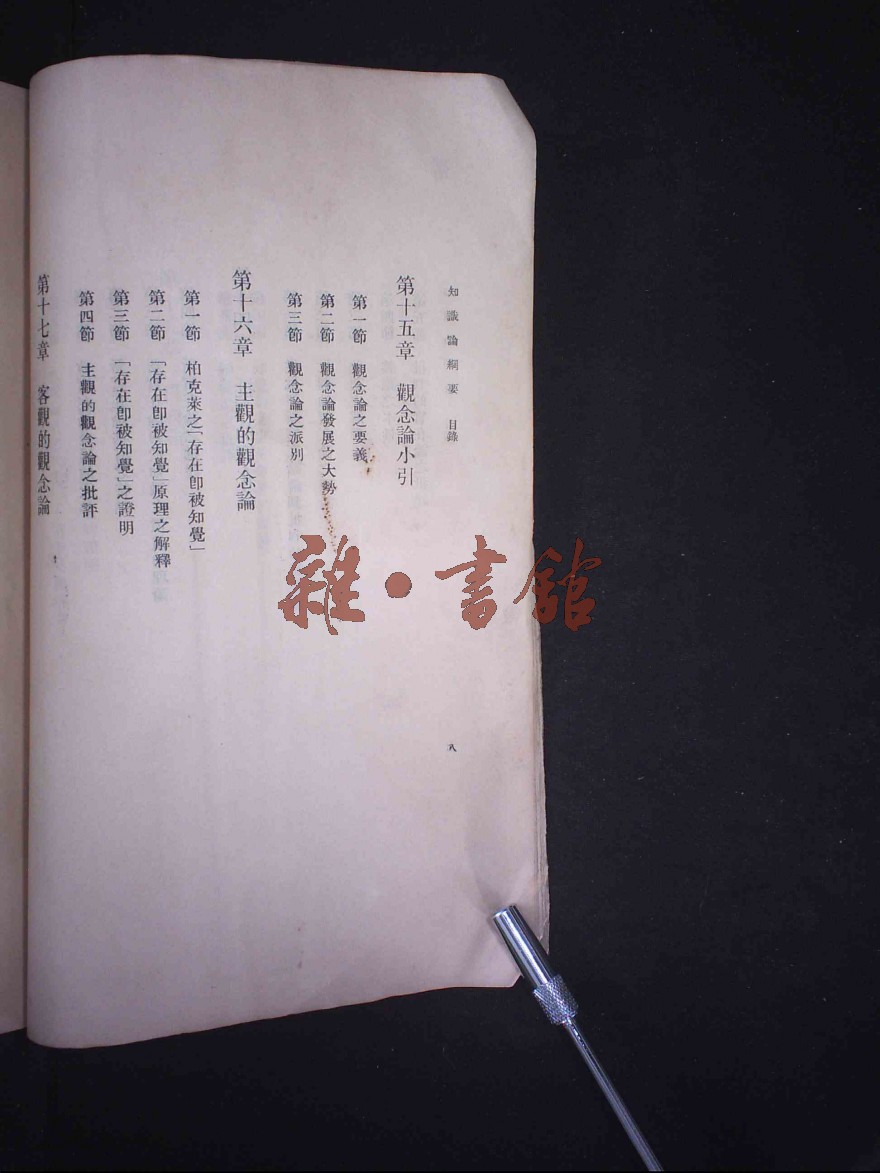 知識論綱要 目錄
第十五章 觀念論小引
第一節 觀念論之要義
第二節 觀念論發展之大勢
第三節 觀念論之派別
第十六章 主觀的觀念論
第一節 柏克萊之「存在卽被知覺」
第二節 「存在卽被知覺」原理之解釋
第三節 「存在卽被知覺」之證明
第四節 主觀的觀念論之批評
第十七章 客觀的觀念論
八
雜·書館